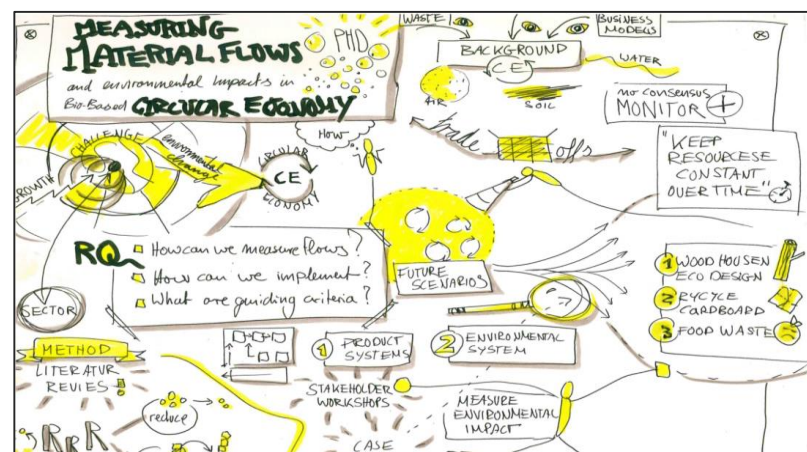 MEASURING
MATERIAL FLOWS
and environmental impacts in
Bio-Based CIRCULAR ECONOMY
PHD
WASTE
BUSINESS
MODELS
BACKGROUND
CE
WATER
AIR
SOIL
no consensus
MONITOR +
trade offs
"KEEP
RESOURCESE
CONSTANT
OVER TIME"
CHALLENGE
environmental
change
GROWTH
How
CIRCULAR
CE
ECONOMY
SECTOR
RQ
How can we measure flows?
How can we implement?
What are guiding criteria?
FUTURE
SCENARIOS
1 WOOD HOUSEN
ECO DESIGN
2 RYCYCLE
CARDBOARD
3 FOOD WASTE
METHOD
LITERATUR
REVIES
reduce
RRR
1 PRODUCT
SYSTEMS
STAKEHOLDER
WORKSHOPS
CASE
2 ENVIRONMENTAL
SYSTEM
MEASURE
ENVIRONMENTAL
IMPACT